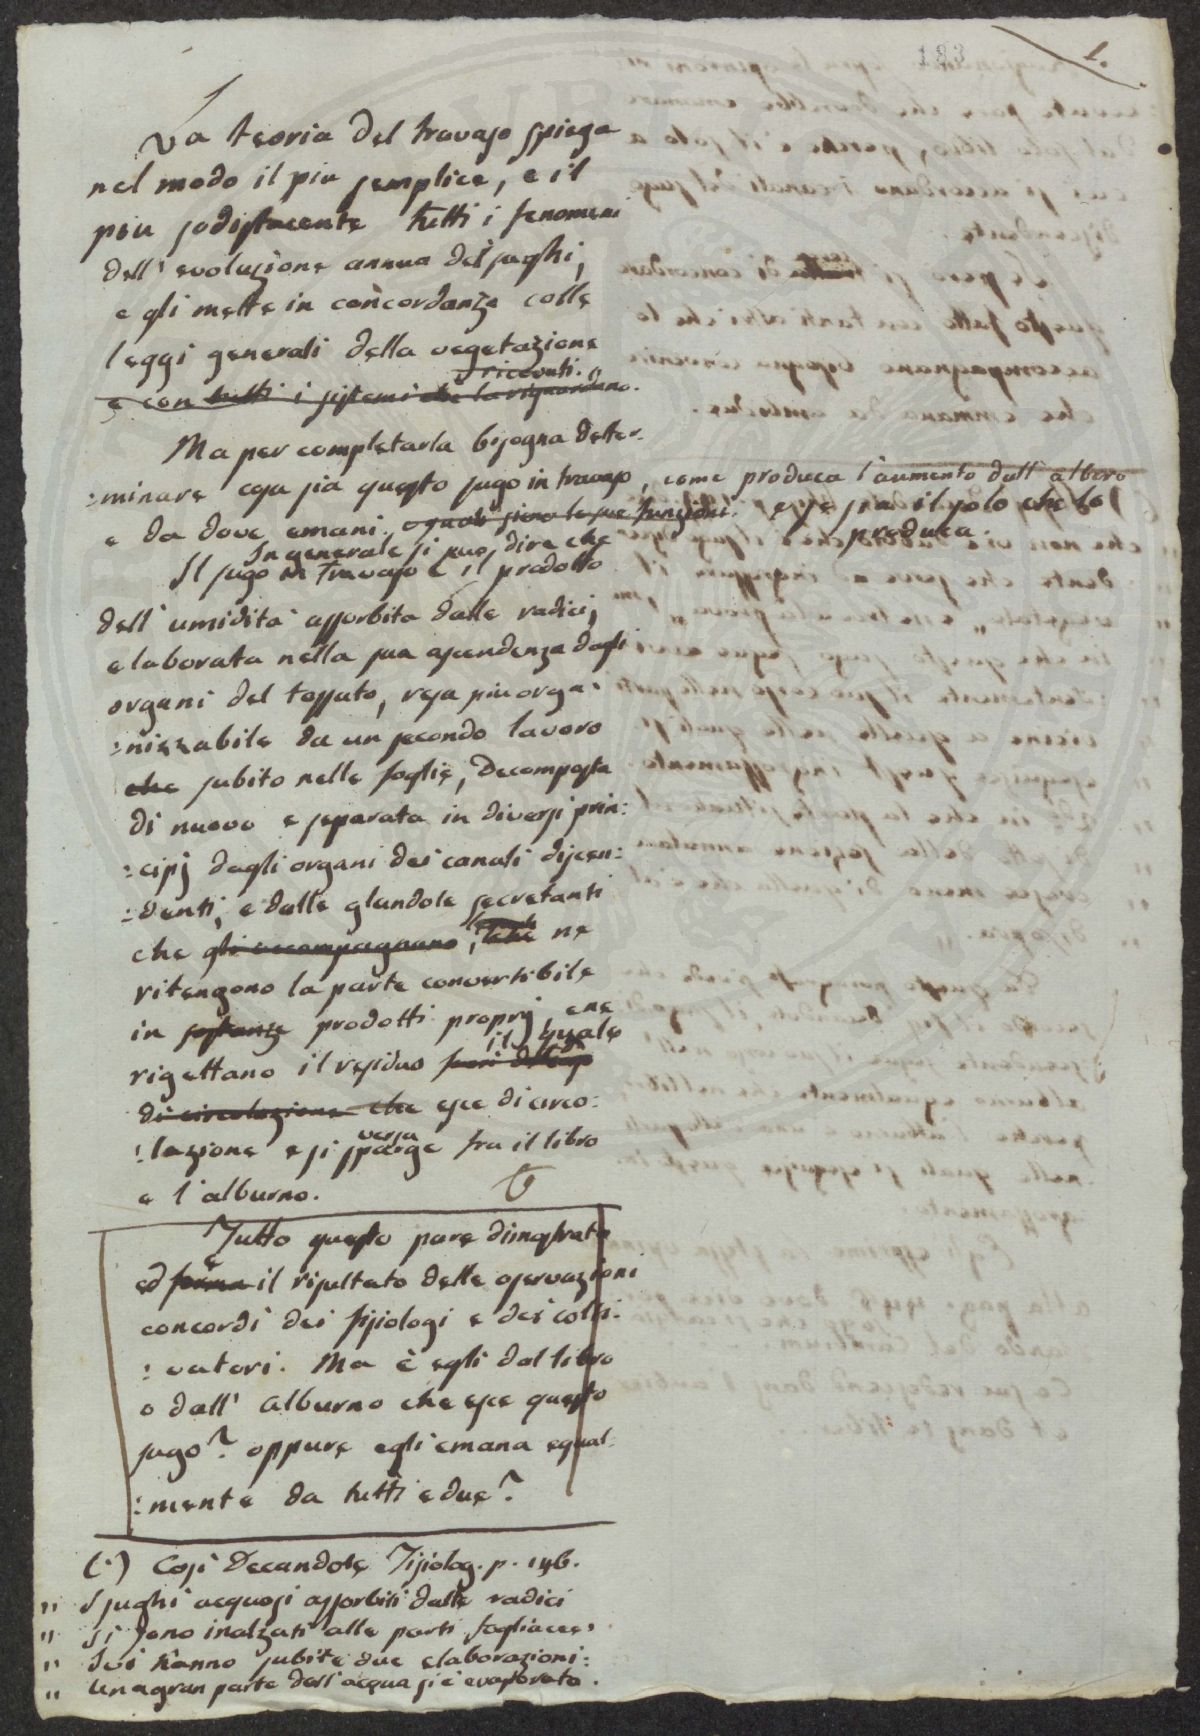 183
1.
La teoria del travaso spiega
nel modo il piu semplice, e il
piu sodisfacente tutti i fenomeni
dell' evoluzione annua dei sughi,
e gli mette in concordanza colle
leggi generali della vegetazione
ricevuti.
e con tutti i sistemi che la riguardano.
Ma per completarla bisogna deter-
:minare cosa sia questo sugo in travaso, come produca l'aumento dall' albero
e da dove emani. o quali siano le sue funzioni. e se sia il solo che lo
produca.
In generale si può dire che
Il sugo in travaso è il prodotto
dell' umidità assorbita dalle radici,
elaborata nella sua ascendenza dagli
organi del tessuto, resa piu orga-
:nizzabile da un secondo lavoro
che subito nelle foglie, decomposta
di nuovo e separata in diversi prin:
:cipj dagli organi dei canali discen:
:denti, e dalle glandole secretanti
che gli accompagnano, che ne
ritengono la parte convertibile
in sostanze prodotti proprj, e ne
rigettano il residuo fuori del il quale
di circolazione che esce di circo:
:lazione e si sparge versa fra il libro
e l'alburno.
Tutto questo pare dimostrato
ed forma è il risultato delle osservazioni
concordi dei fisiologi e dei colti-
:vatori. Ma è egli dal libro
o dall' alburno che esce questo
sugo? oppure egli emana egual-
:mente da tutti e due?
(1) Così Decandole Fisiolog. p. 146.
" I sughi acquosi assorbiti dalle radici
" si sono inalzati alle parti fogliacee,
" Ivi hanno subite due elaborazioni:
" una gran parte dell' acqua si è evaporata.